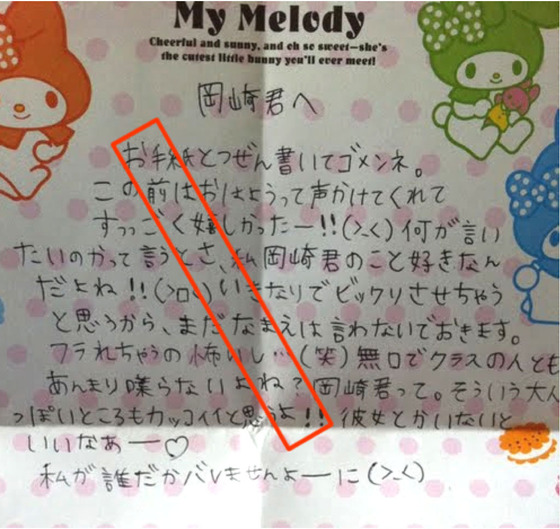 My Melody
Cheerful and sunny, and oh so sweet—she's
the cutest little bunny you'll ever meet!
岡崎君へ
お手紙とつぜん書いてゴメンネ。
この前はおはようって声かけてくれて
すっっごく嬉しかったー!!(>_<)何が言い
たいのかって言うとさ、私岡崎君のこと好きなん
だよね!!(>ロ<)いきなりでビックリさせちゃう
と思うから、まだなまえは言わないでおきます。
フラれちゃうの怖いし…(笑)無口でクラスの人とも
あんまり喋らないよね?岡崎君って。そういう大人
っぽいところもカッコイイと思うよ!!彼女とかいないと
いいなあー♡
私が誰だかバレませんよーに(>_<)